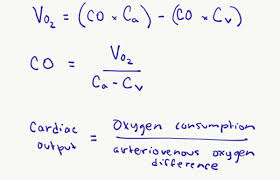 V̇O₂ = (CO × Cₐ) – (CO × Cᵥ)
CO = V̇O₂ / Cₐ – Cᵥ
Cardiac output = Oxygen consumption / arteriovenous oxygen difference